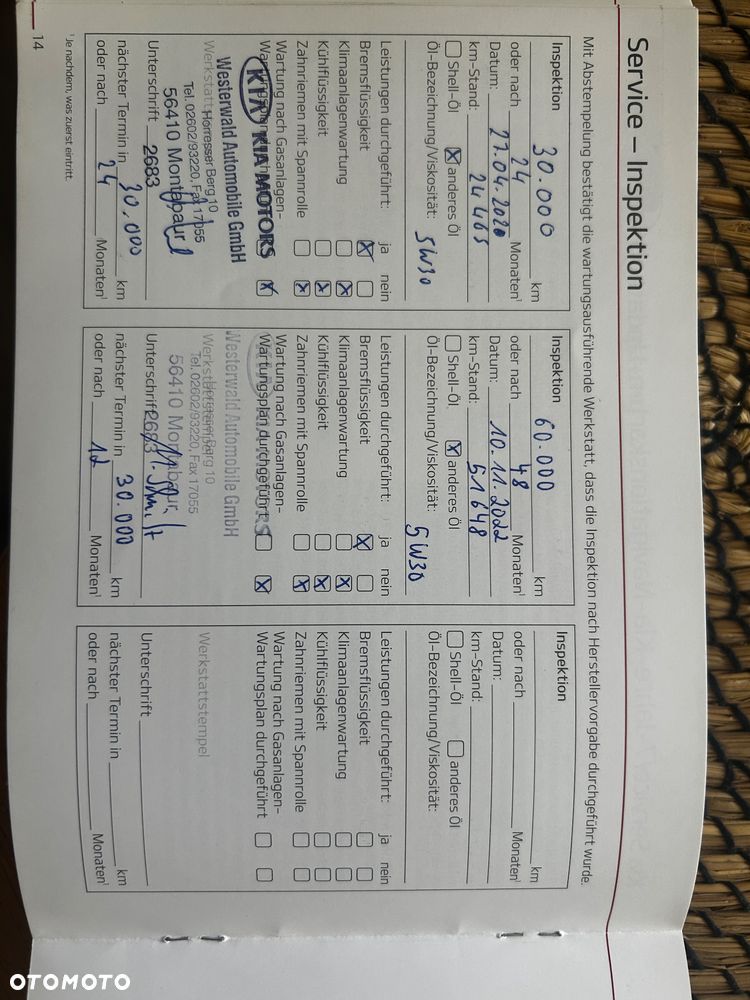 Service – Inspektion
Mit Abstempelung bestätigt die wartungsausführende Werkstatt, dass die Inspektion nach Herstellervorgabe durchgeführt wurde.
Inspektion
30.000 km
oder nach 24 Monaten¹
Datum: 27.04.2020
km-Stand: 24465
Shell-Öl X anderes Öl
Öl-Bezeichnung/Viskosität:
5W30
Leistungen durchgeführt: ja nein
Bremsflüssigkeit X
Klimaanlagenwartung X
Kühlflüssigkeit X
Zahnriemen mit Spannrolle X
Wartung nach Gasanlagen-
Wartungsplan durchgeführt X
KIA KIA MOTORS
Westerwald Automobile GmbH
Werkstattstempel
Horresser Berg 10
Tel. 02602/93220, Fax 17055
56410 Montabaur
Unterschrift 2683
nächster Termin in 30.000 km
oder nach 24 Monaten¹
Inspektion
60.000 km
oder nach 48 Monaten¹
Datum: 10.11.2022
km-Stand: 51648
Shell-Öl X anderes Öl
Öl-Bezeichnung/Viskosität:
5W30
Leistungen durchgeführt: ja nein
Bremsflüssigkeit X
Klimaanlagenwartung X
Kühlflüssigkeit X
Zahnriemen mit Spannrolle X
Wartung nach Gasanlagen-
Wartungsplan durchgeführt X
Westerwald Automobile GmbH
Werkstattstempel
Horresser Berg 10
Tel. 02602/93220, Fax 17055
56410 Montabaur
Unterschrift 2683
nächster Termin in 30.000 km
oder nach 12 Monaten¹
Inspektion
km
oder nach Monaten¹
Datum:
km-Stand:
Shell-Öl anderes Öl
Öl-Bezeichnung/Viskosität:
Leistungen durchgeführt: ja nein
Bremsflüssigkeit
Klimaanlagenwartung
Kühlflüssigkeit
Zahnriemen mit Spannrolle
Wartung nach Gasanlagen-
Wartungsplan durchgeführt
Werkstattstempel
Unterschrift
nächster Termin in km
oder nach Monaten¹
¹Je nachdem, was zuerst eintritt.
14
OTOMOTO